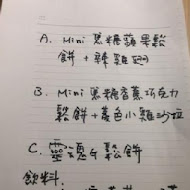 A. Mini 黑糖蘋果鬆
餅 + 辣雞翅
B. Mini 黑糖香蕉巧克力
鬆餅 + 薑色小雞沙拉
C. 靈魂肉鬆餅
飲料: